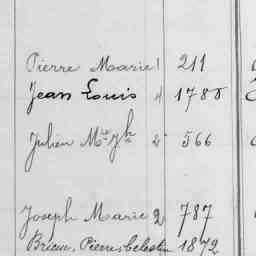 Pierre Marie 1 211
Jean Louis 4 1788
Julien Mie Jh 2 566
Joseph Marie 2 787
Brieuc, Pierre Célestin 1872